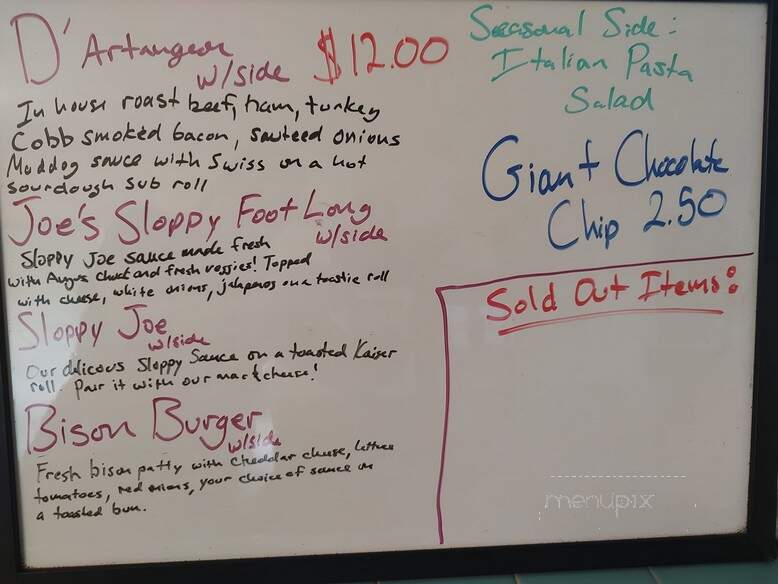 D'Artangeon
w/side $12.00
In house roast beef, ham, turkey
Cobb smoked bacon, sauteed onions
Maddog sauce with Swiss on a hot
sourdough sub roll
Joe's Sloppy Foot Long
w/side
Sloppy Joe sauce made fresh
with Angus chuck and fresh veggies! Topped
with cheese, white onions, jalapenos on a toastie roll
Sloppy Joe
w/side
Our delicous Sloppy Sauce on a toasted Kaiser
roll. Pair it with our mac & cheese!
Bison Burger
w/side
Fresh bison patty with cheddar cheese, lettuce
tomatoes, red onions, your choice of sauce on
a toasted bun.
Seasonal Side:
Italian Pasta
Salad
Giant Chocolate
Chip 2.50
Sold Out Items:
menupix